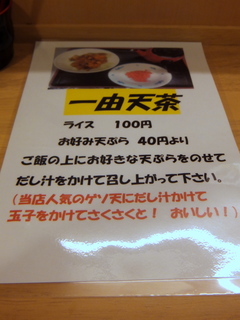 一由天茶
ライス 100円
お好み天ぷら 40円より
ご飯の上にお好きな天ぷらをのせて
だし汁をかけて召し上がって下さい。
(当店人気のゲソ天にだし汁かけて
玉子をかけてさくさくと! おいしい!)